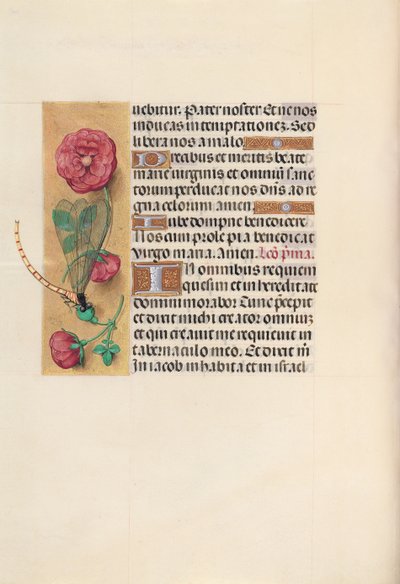 uebitur. Pater noster Et ne nos
inducas in temptationez. Sed
libera nos a malo.
Precibus et meritis beate
marie virginis et omniū sanc
torum perducat nos dn̄s ad re
gna celorum amen.
Iube dompne benedicere
Nos cum prole pia benedicat
virgo maria. Amen. Lcō p̄ma.
IN omnibus requiem
quesiui et in heredita
domini morabor Tunc precepit
et dixit michi creator omniuz
et qui creauit me requieuit in
tabernaculo meo. Et dixit m̄
In iacob inhabita et in israel